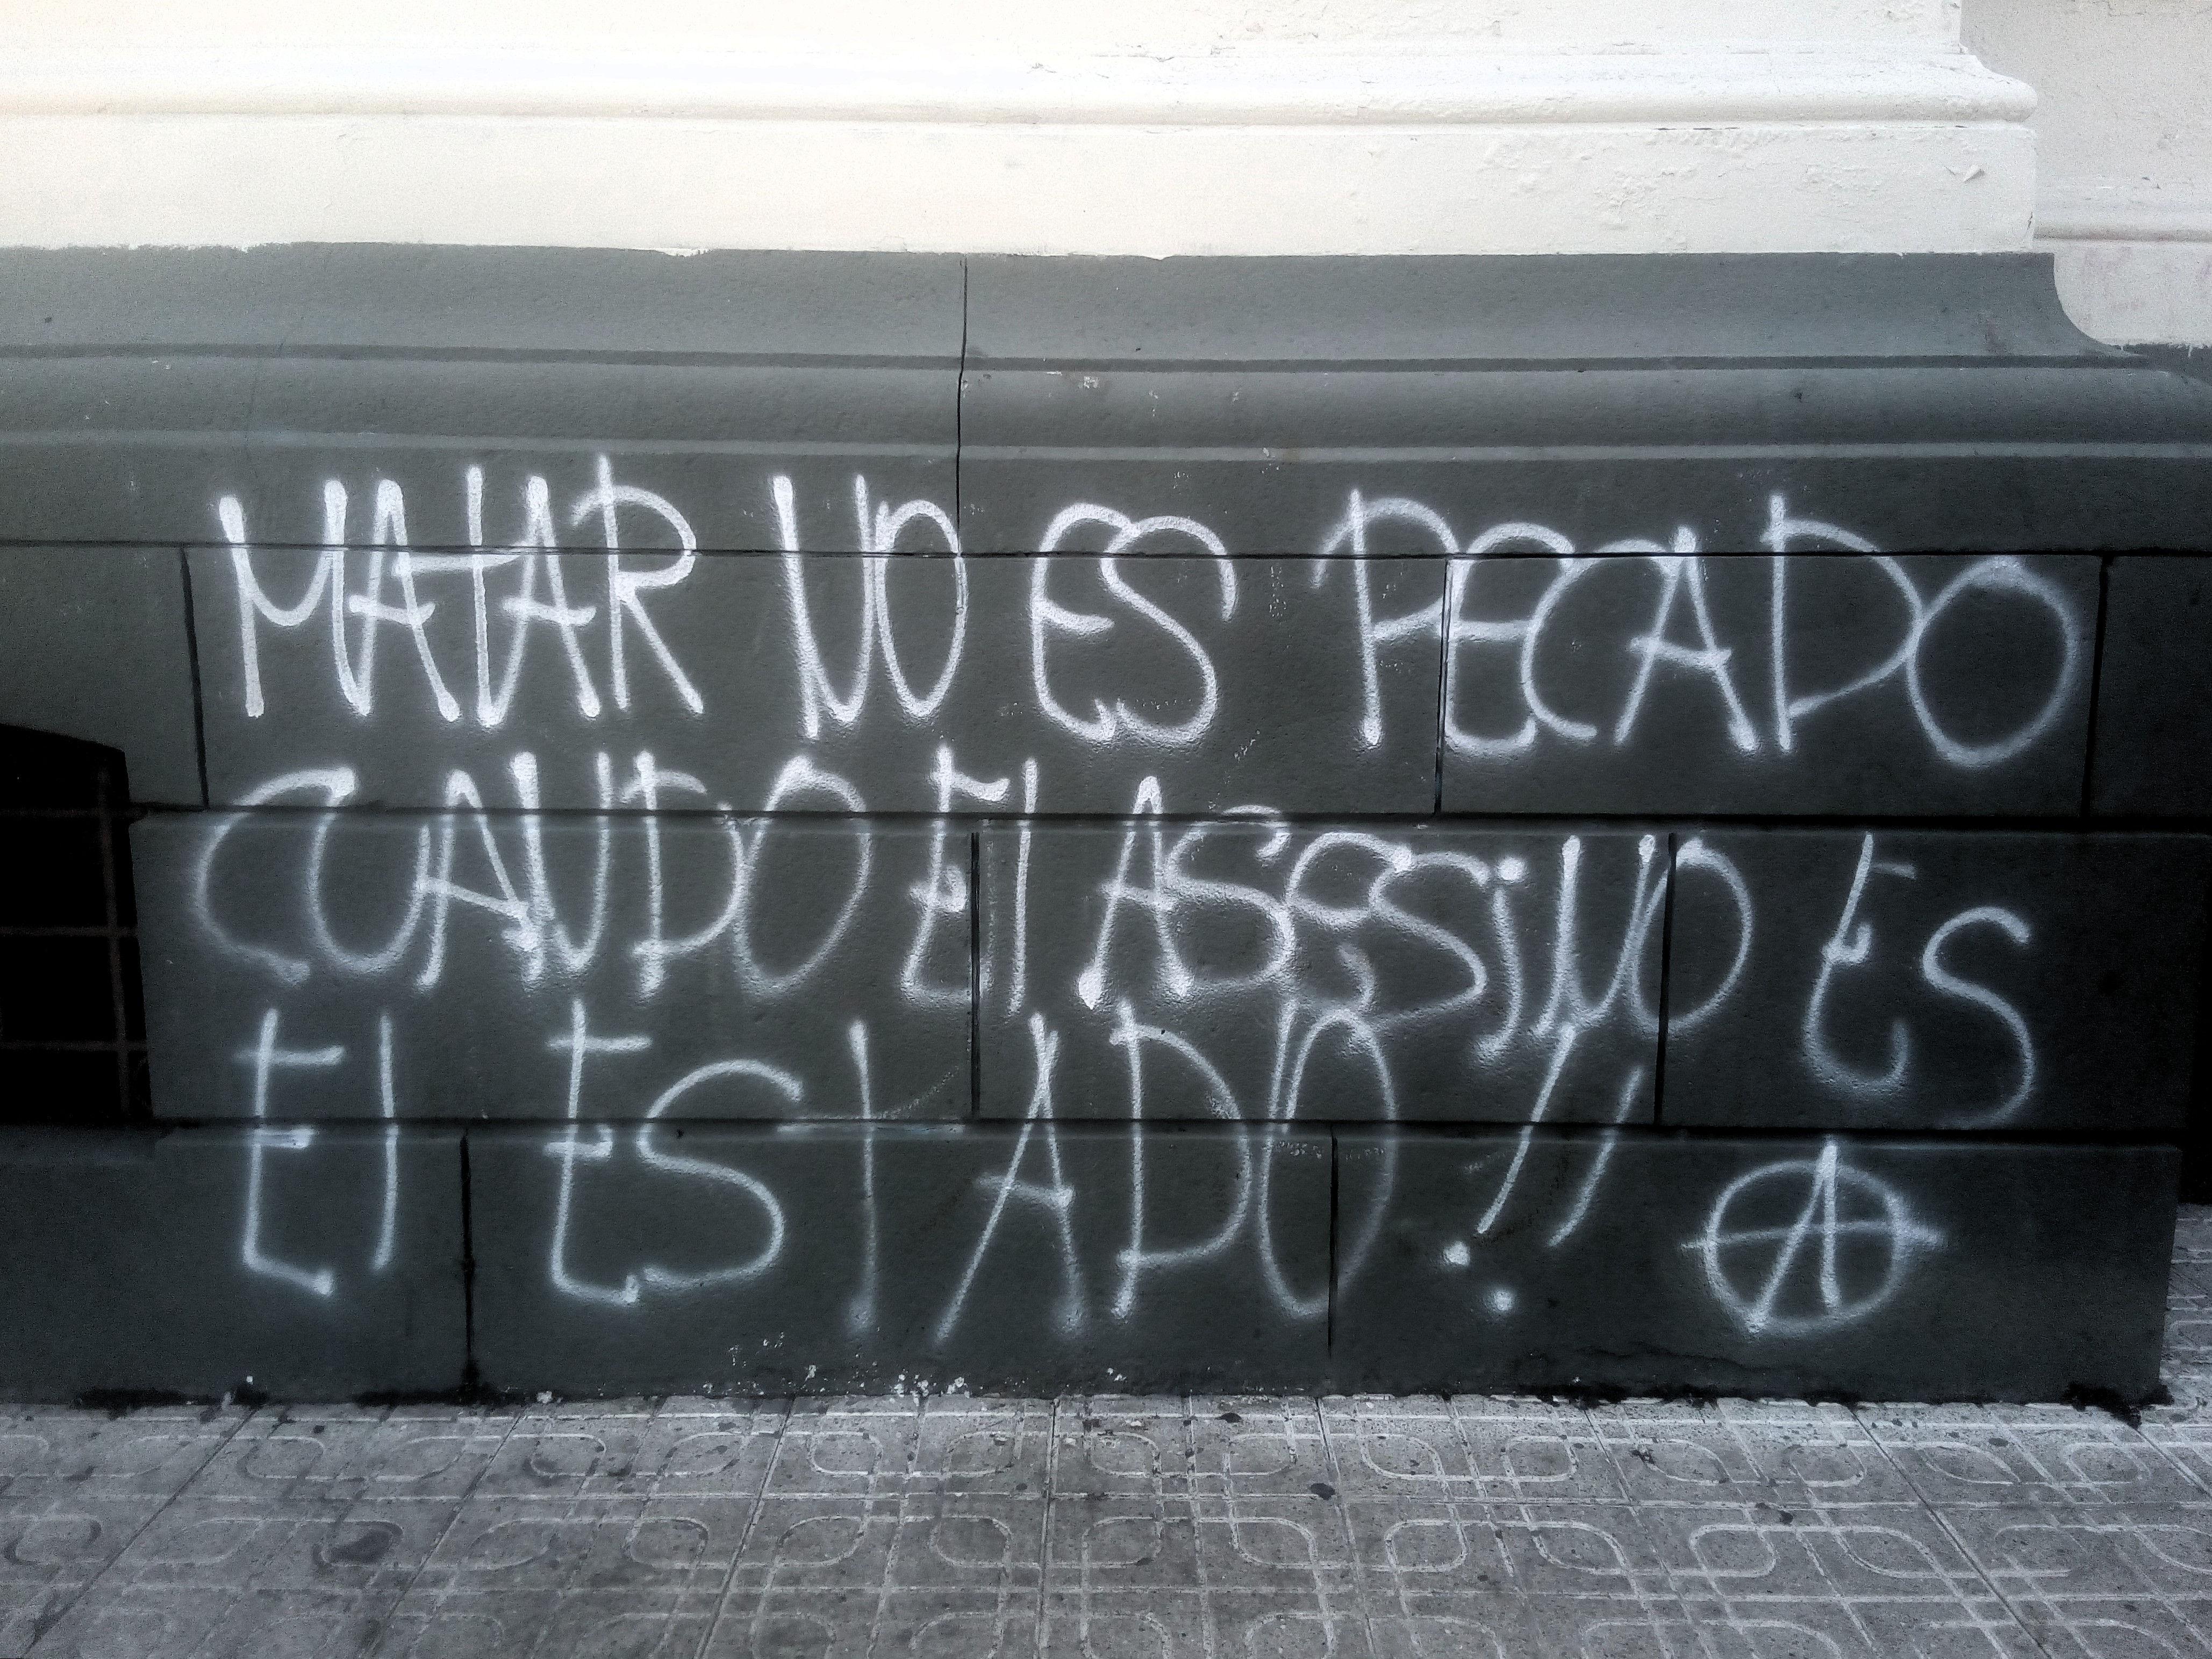 MATAR NO ES PECADO
CUANDO El ASESiNO ES
El ESTADO!! Ⓐ